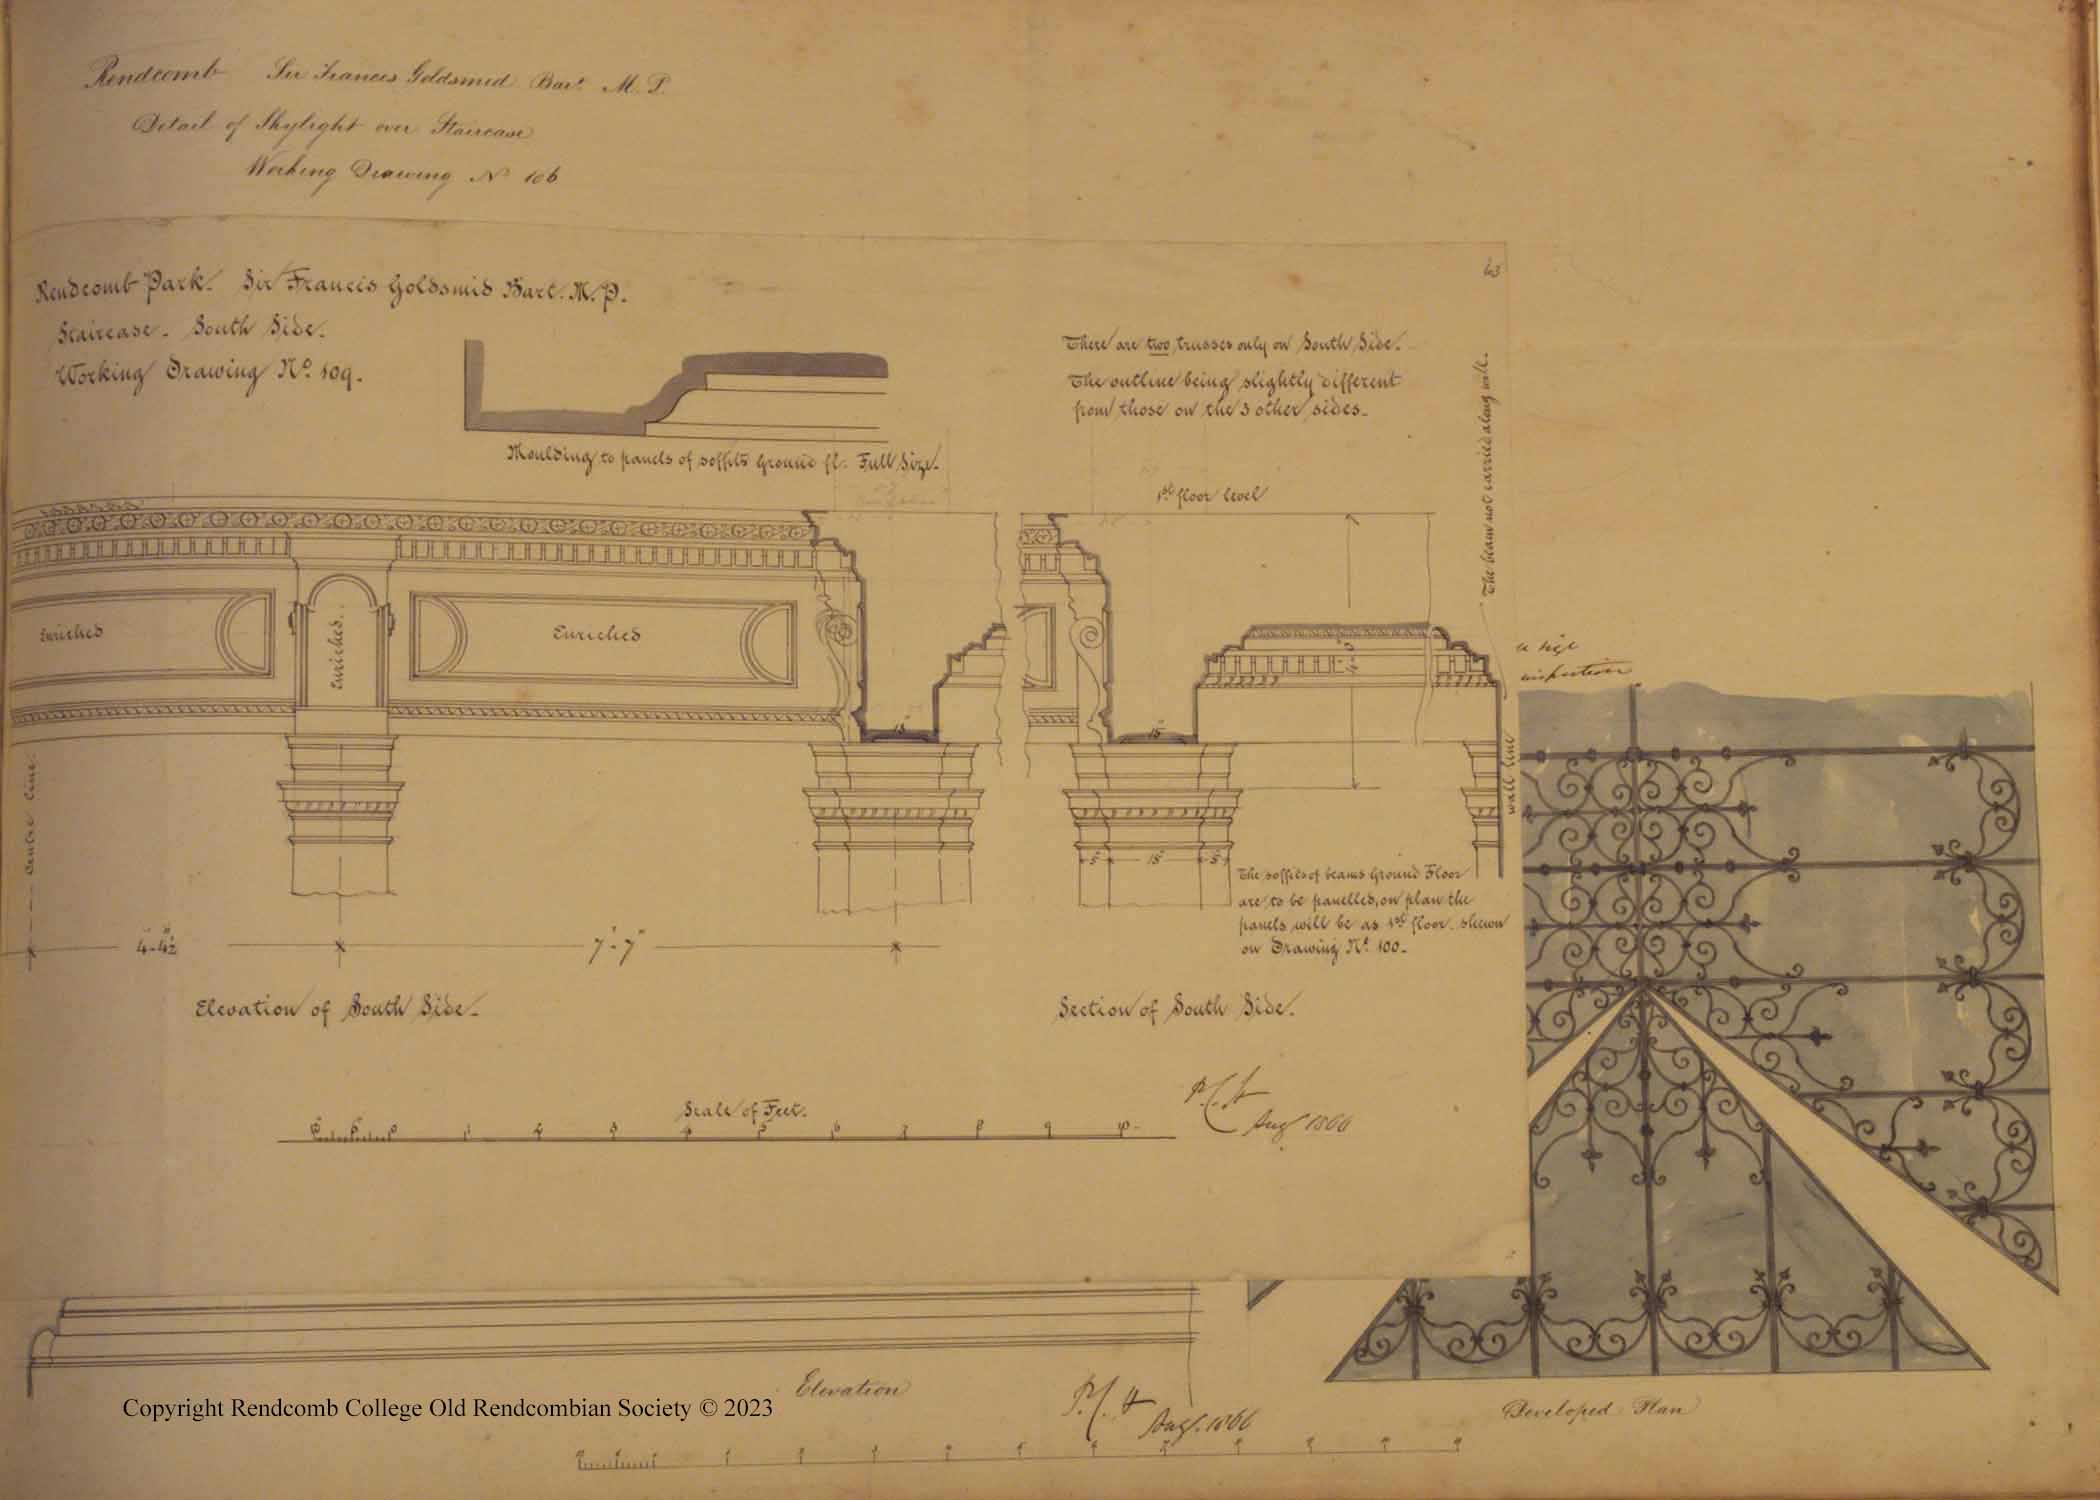 Rendcomb Sir Francis Goldsmid Bart. M. P.
Detail of Skylight over Staircase
Working Drawing No 106
63
Rendcomb Park. Sir Francis Goldsmid Bart. M. P.
Staircase - South Side.
Working Drawing No. 109.
Moulding to panels of soffits Ground fl. Full Size.
There are two trusses only on South Side.
The outline being slightly different
from those on the 3 other sides.
The beam not carried along wall.
1st floor level
Enriched
Enriched.
Enriched
15"
15"
4'-0"
wall line
centre line.
5"
15"
5"
The soffits of beams Ground Floor
are to be panelled, on plan the
panels will be as 1st floor shewn
on Drawing No. 100.
4'-4½"
7'-7"
Elevation of South Side.
Section of South Side.
Scale of Feet.
0 1 2 3 4 5 6 7 8 9 10
Aug 1866
Elevation
Aug. 1866
Developed Plan
Copyright Rendcomb College Old Rendcombian Society © 2023